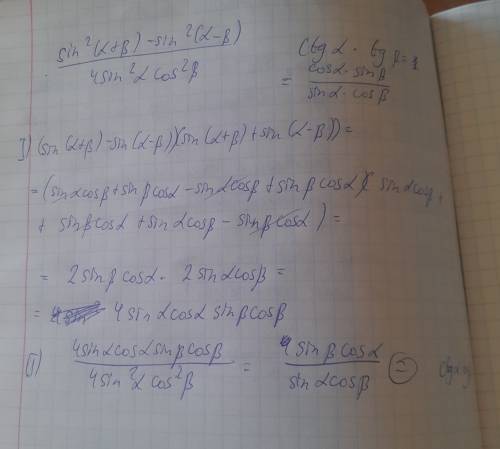 sin²(α+β) - sin²(α-β) / 4sin²α cos²β
ctg α · tg β =
= cosα · sinβ / sinα · cosβ
I) (sin(α+β) - sin(α-β))(sin(α+β) + sin(α-β)) =
= (sinαcosβ + sinβcosα - sinαcosβ + sinβcosα)( sinαcosβ +
+ sinβcosα + sinαcosβ - sinβcosα ) =
= 2sinβcosα · 2sinαcosβ =
= 4sinαcosα sinβcosβ
II) 4sinαcosαsinβcosβ / 4sin²α cos²β = sinβcosα / sinαcosβ = ctgα